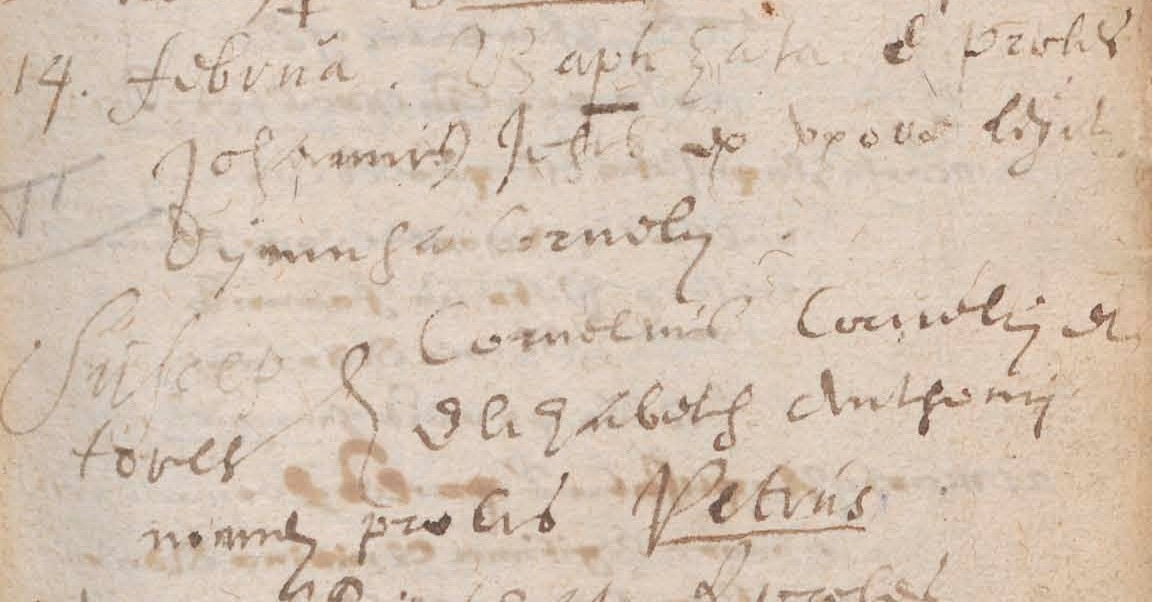 14. februa. Baptizata e proles
Johannis ex uxore legit.
Dijmmpha Cornelij.
Suscep Cornelius Cornelij et
tores Elizabeth Anthonij
nomen prolis Petrus